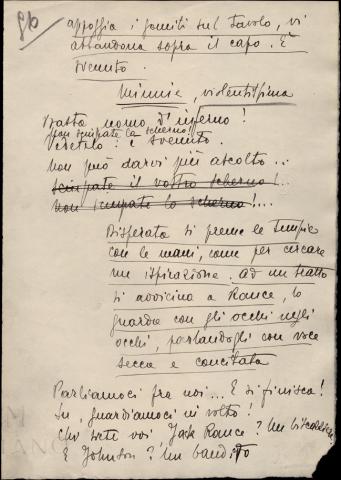 96
appoggia i gomiti sul tavolo, vi
abbandona sopra il capo. È
svenuto.
Minnie, violentissima
Basta, uomo d'inferno!
non sciupate lo scherno!
Vedetelo: è svenuto.
Non può darvi più ascolto...
sciupate il vostro scherno!..
non sciupate lo scherno!...
Disperata si preme le tempie
con le mani, come per cercare
un'ispirazione. Ad un tratto
si avvicina a Rance, lo
guarda con gli occhi negli
occhi, parlandogli con voce
secca e concitata
Parliamoci fra noi... E si finisca!
Su, guardiamoci in volto!
Chi siete voi, Jack Rance? Un biscazziere.
E Johnson? Un bandito